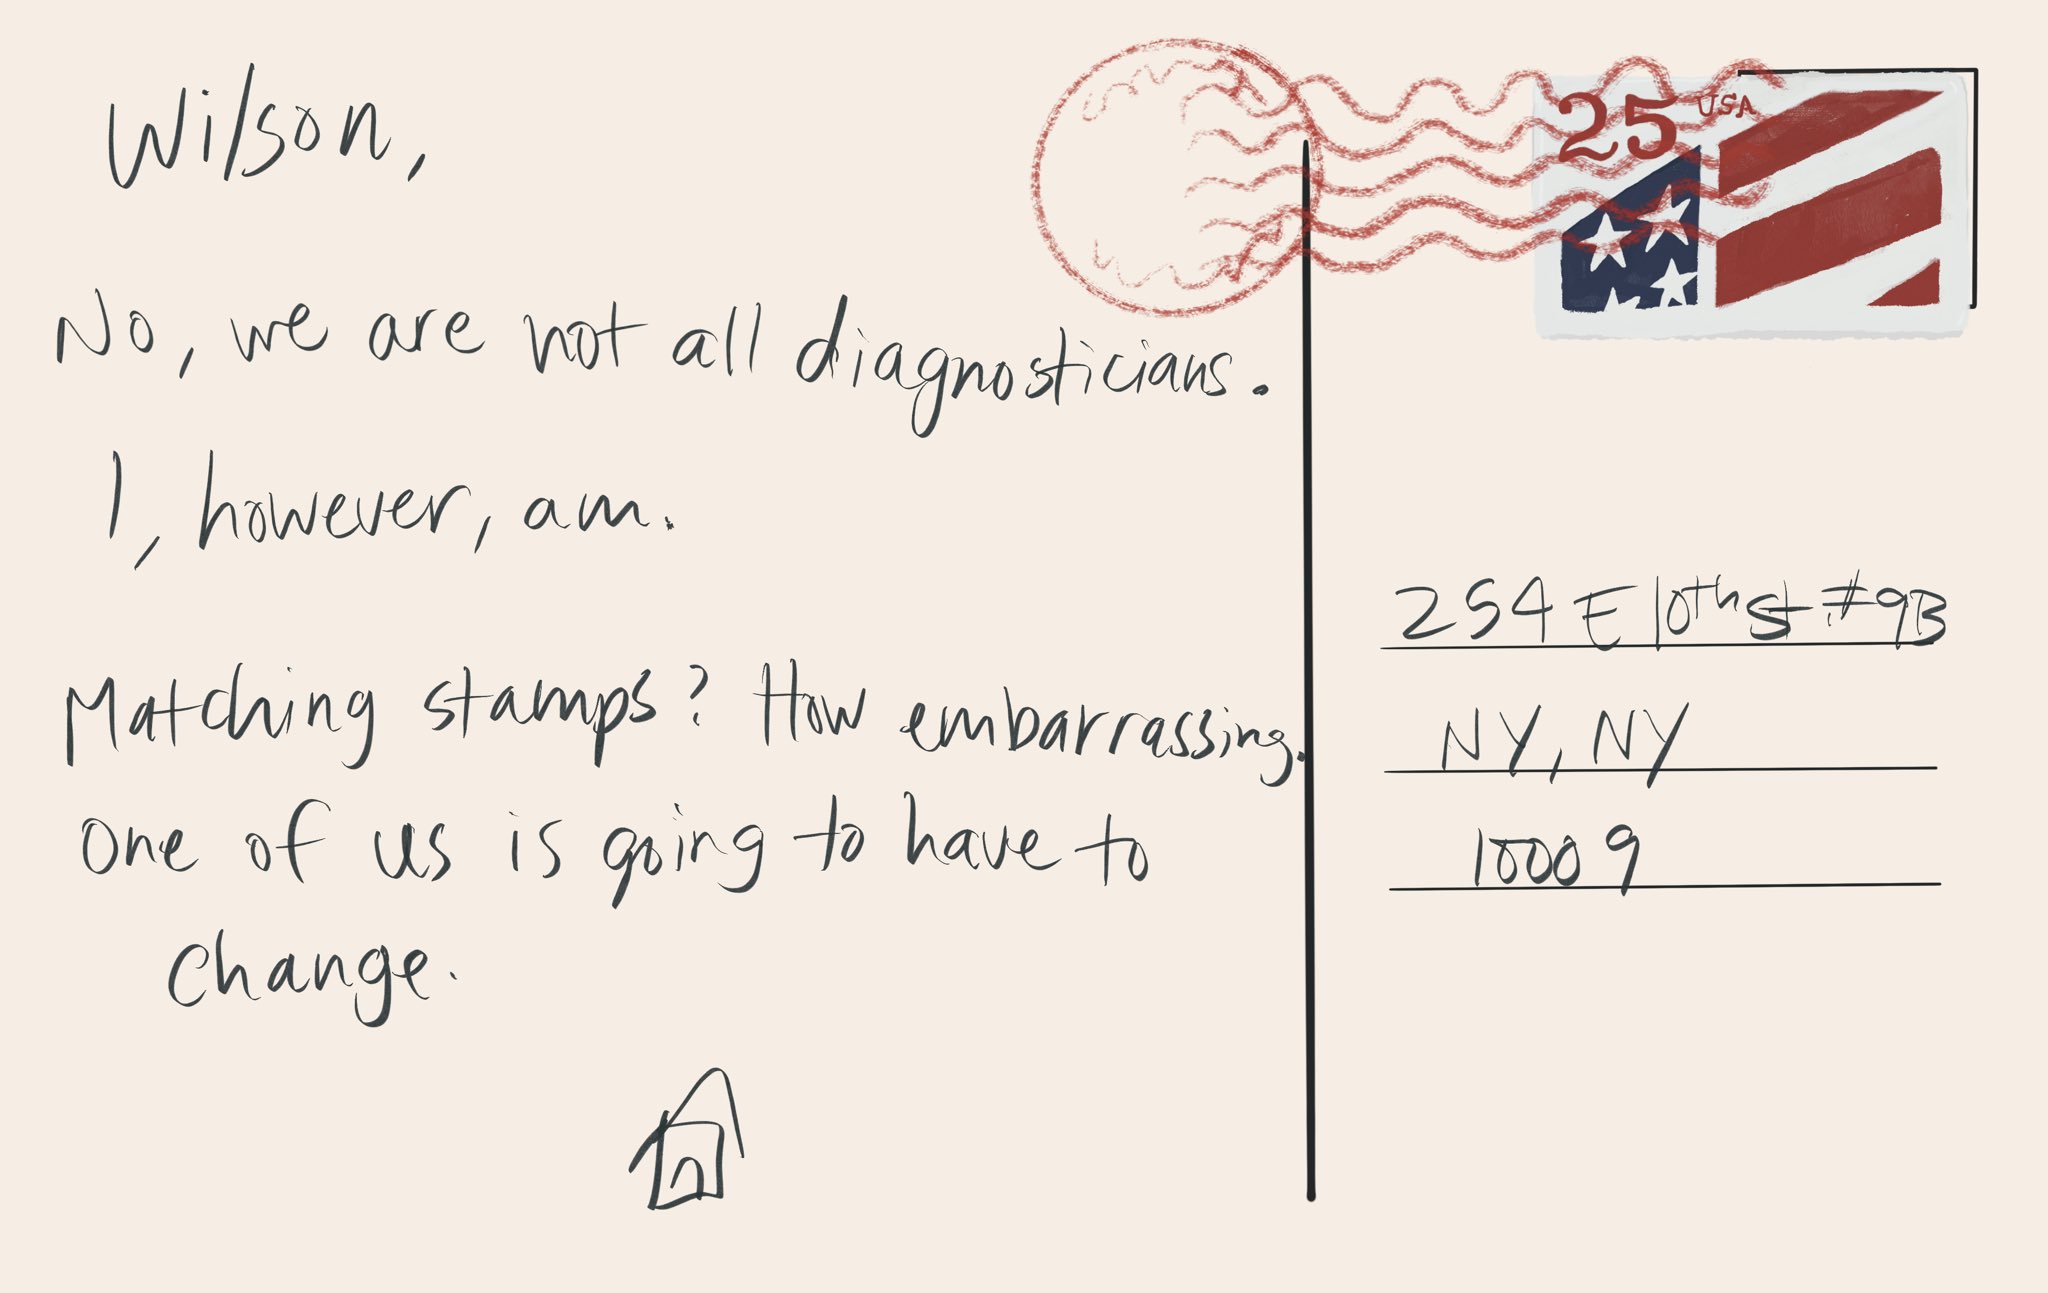 Wilson,
No, we are not all diagnosticians.
I, however, am.
Matching stamps? How embarrassing.
One of us is going to have to
change.
25 USA
254 E 10th St #9B
NY, NY
10009